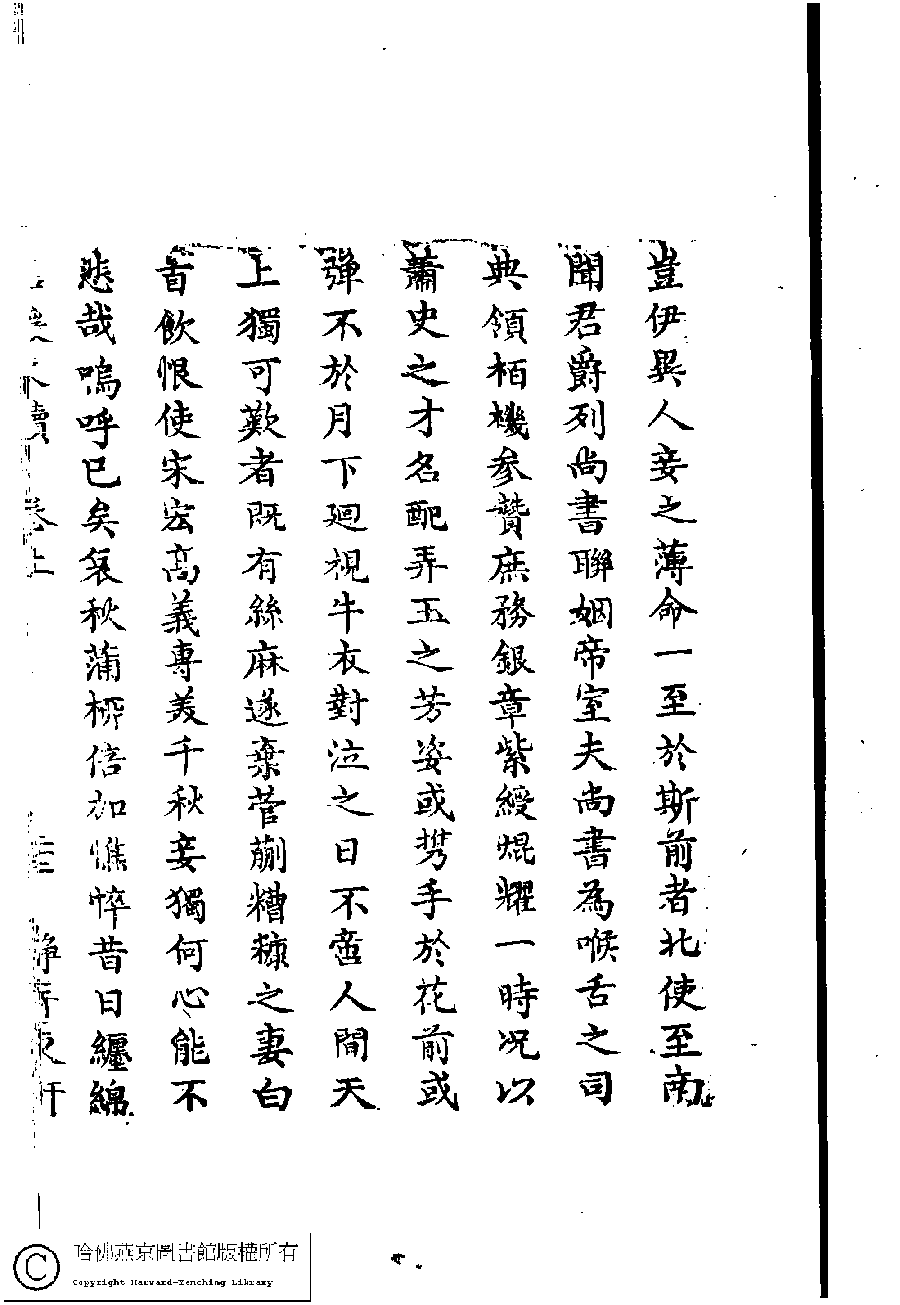 豈伊異人妾之薄命一至於斯前者北使至南
聞君爵列尚書聯姻帝室夫尚書為喉舌之司
典領栢機參贊庶務銀章紫綬焜耀一時况以
蕭史之才名配弄玉之芳姿或携手於花前或
彈不於月下廻視牛衣對泣之日不啻人間天
上獨可歎者既有絲麻遂棄菅蒯糟糠之妻白
首飲恨使宋宏高義專美千秋妾獨何心能不
悲哉嗚呼已矣哀秋蒲柳倍加憔悴昔日纏綿
卷上
哈佛燕京圖書館版權所有
Copyright Harvard-Yenching Library